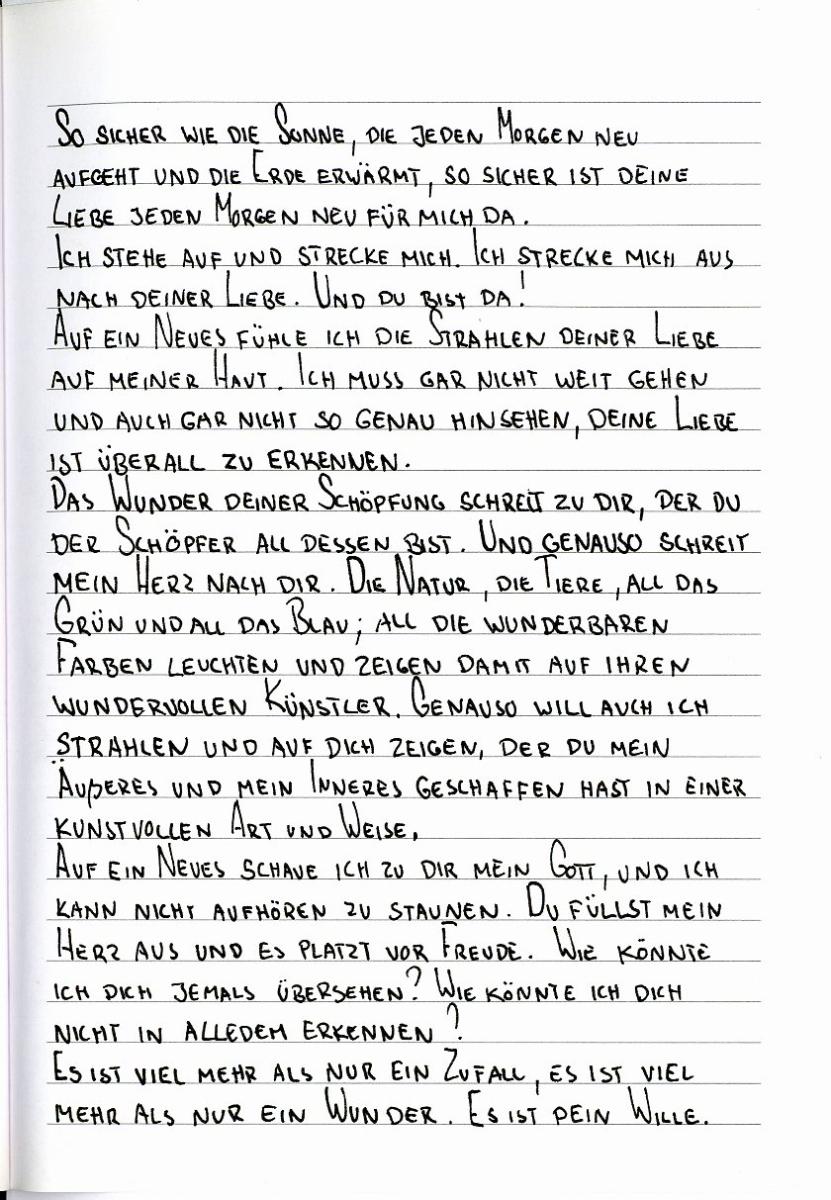 So sicher wie die Sonne, die jeden Morgen neu
aufgeht und die Erde erwärmt, so sicher ist deine
Liebe jeden Morgen neu für mich da.
Ich stehe auf und strecke mich. Ich strecke mich aus
nach deiner Liebe. Und du bist da!
Auf ein Neues fühle ich die Strahlen deiner Liebe
auf meiner Haut. Ich muss gar nicht weit gehen
und auch gar nicht so genau hinsehen, deine Liebe
ist überall zu erkennen.
Das Wunder deiner Schöpfung schreit zu dir, der du
der Schöpfer all dessen bist. Und genauso schreit
mein Herz nach dir. Die Natur, die Tiere, all das
Grün und all das Blau; all die wunderbaren
Farben leuchten und zeigen damit auf ihren
wundervollen Künstler. Genauso will auch ich
strahlen und auf dich zeigen, der du mein
Äußeres und mein Inneres geschaffen hast in einer
kunstvollen Art und Weise.
Auf ein Neues schaue ich zu dir mein Gott, und ich
kann nicht aufhören zu staunen. Du füllst mein
Herz aus und es platzt vor Freude. Wie könnte
ich dich jemals übersehen? Wie könnte ich dich
nicht in alledem erkennen?
Es ist viel mehr als nur ein Zufall, es ist viel
mehr als nur ein Wunder. Es ist Dein Wille.